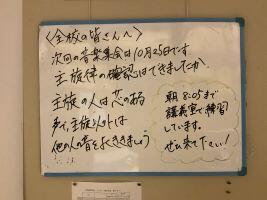 〈全校の皆さんへ〉
次回の音楽集会は10月25日です
主旋律の確認はできましたか
主旋の人は芯のある
声で、主旋以外は
他の人の音をよくききましょう
朝 8:05まで
講義室で練習
しています。
ぜひ来て下さい!